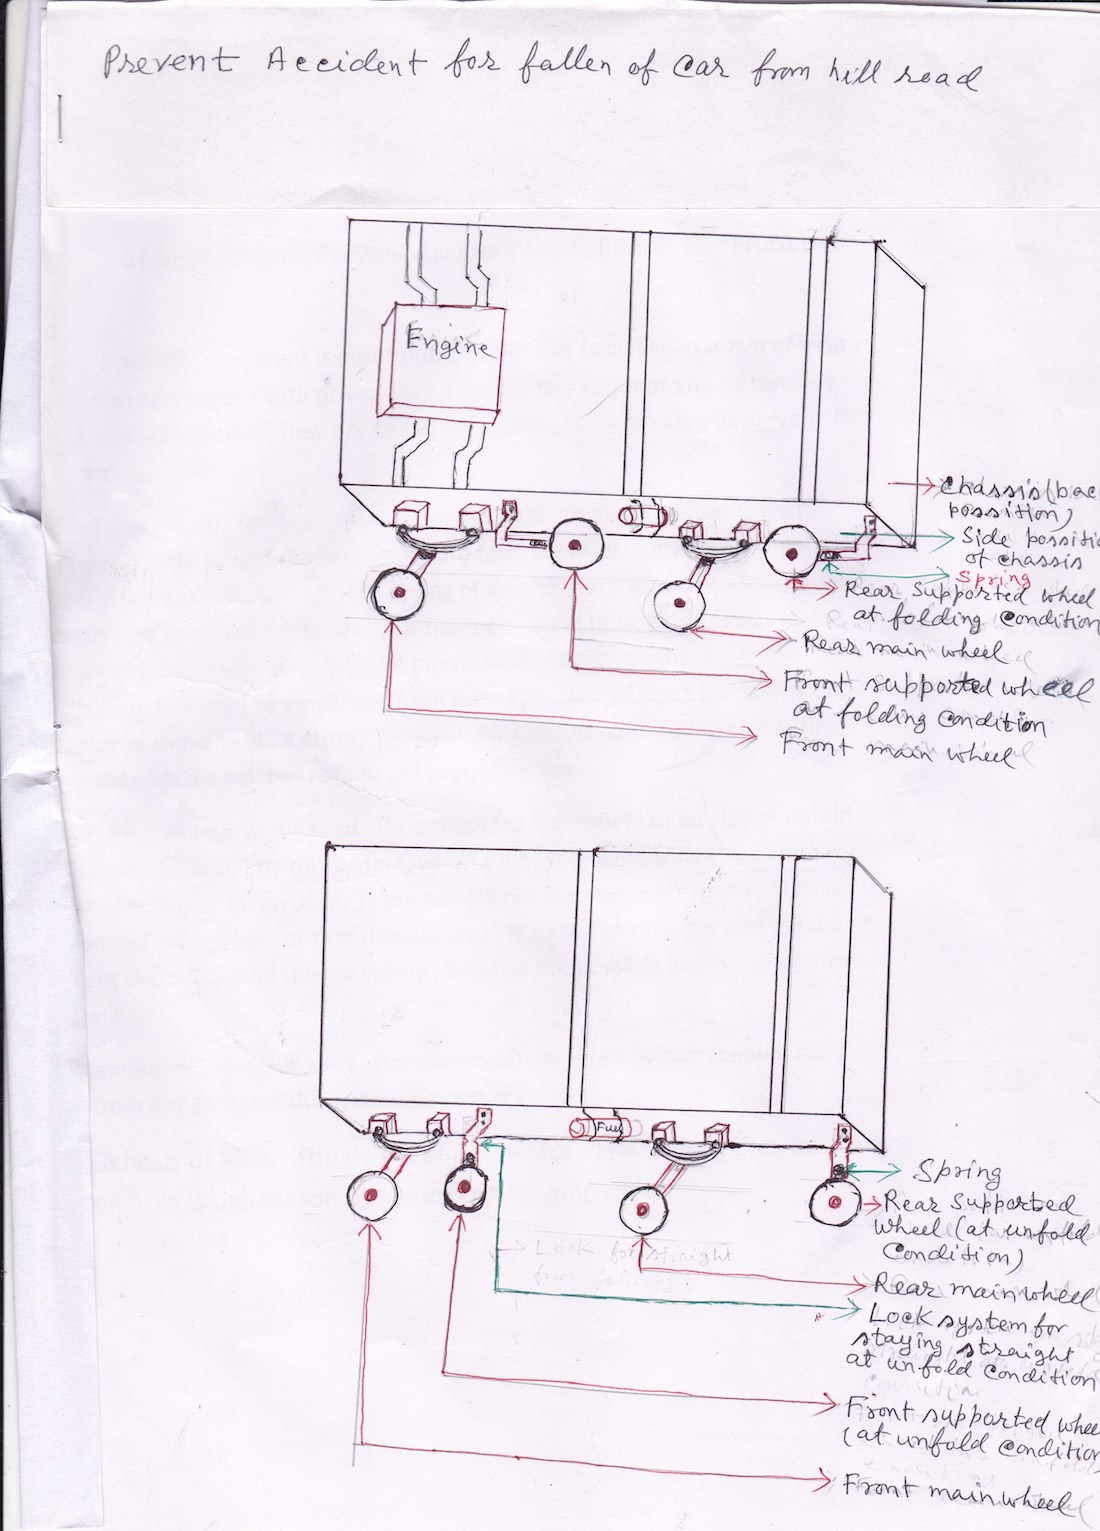 Prevent Accident for fallen of car from hill road
Engine
Chassis(bac
possition)
Side possitio
of chassis
Spring
Rear supported wheel
at folding condition
Rear main wheel
Front supported wheel
at folding condition
Front main wheel
Fuel
Spring
Rear supported
wheel (at unfold
condition)
Lock for straight
Rear main wheel
Lock system for
staying straight
at unfold condition
Front supported whee
(at unfold condition)
Front main wheel